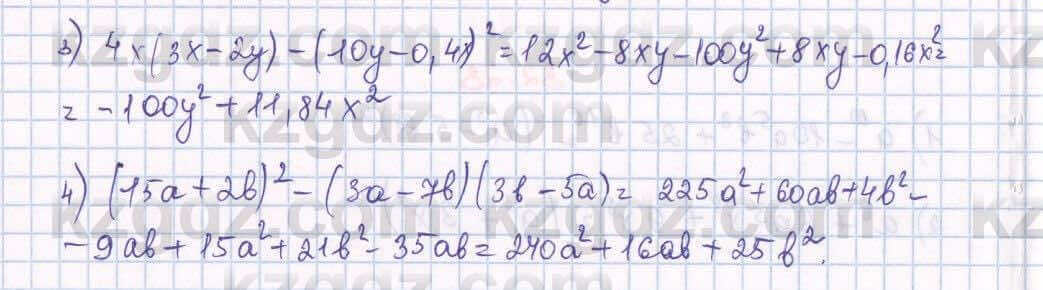 3) 4x(3x-2y)-(10y-0,4x)²=12x²-8xy-100y²+8xy-0,16x²=
= -100y²+11,84x²
4) (15a+2b)²-(3a-7b)(3b-5a)= 225a²+60ab+4b²-
-9ab+15a²+21b²-35ab=240a²+16ab+25b².